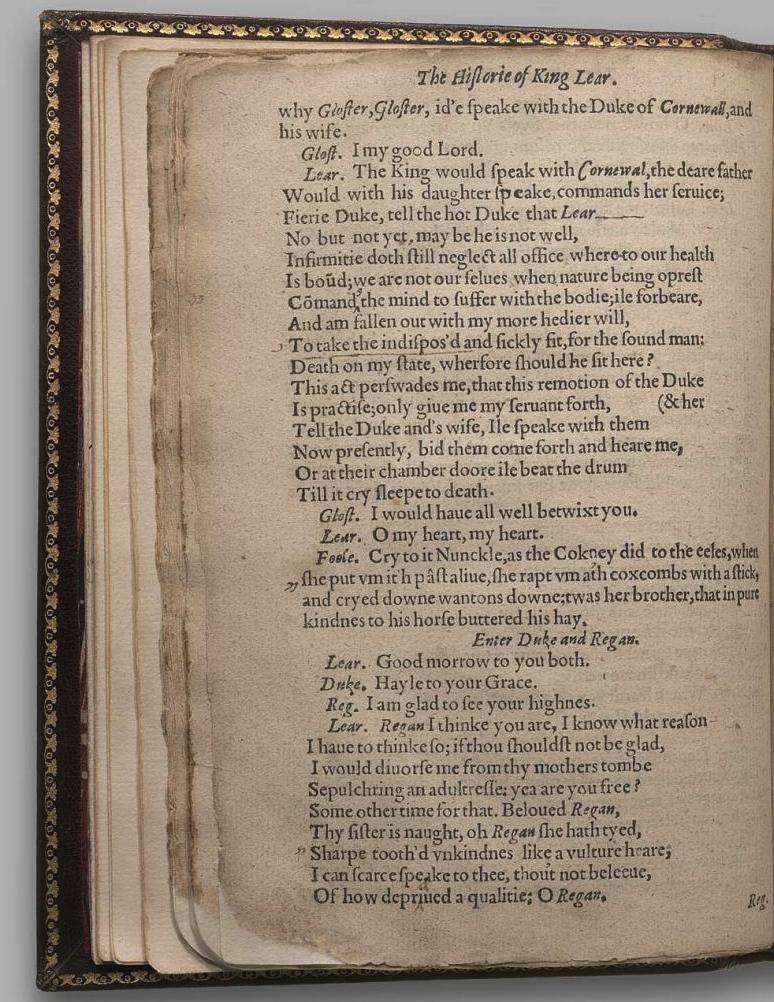 The Hiſtorie of King Lear.
why Gloſter, Gloſter, id'e ſpeake with the Duke of Cornewall, and
his wife.
Gloſt. I my good Lord.
Lear. The King would ſpeak with Cornewal, the deare father
Would with his daughter ſpeake, commands her ſeruice;
Fierie Duke, tell the hot Duke that Lear——
No but not yet, may be he is not well,
Infirmitie doth ſtill neglect all office where-to our health
Is boūd; we are not our ſelues when nature being opreſt
Cōmand, the mind to ſuffer with the bodie; ile forbeare,
And am fallen out with my more hedier will,
To take the indiſpos'd and ſickly fit, for the ſound man;
Death on my ſtate, wherfore ſhould he ſit here?
This act perſwades me, that this remotion of the Duke
Is practiſe; only giue me my ſeruant forth, (& her
Tell the Duke and's wife, Ile ſpeake with them
Now preſently, bid them come forth and heare me,
Or at their chamber doore ile beat the drum
Till it cry ſleepe to death.
Gloſt. I would haue all well betwixt you.
Lear. O my heart, my heart.
Foole. Cry to it Nunckle, as the Cokney did to the eeles, when
ſhe put vm it'h pâſt aliue, ſhe rapt vm ath coxcombs with a ſtick,
and cryed downe wantons downe; twas her brother, that in pure
kindnes to his horſe buttered his hay.
Enter Duke and Regan.
Lear. Good morrow to you both.
Duke. Hayle to your Grace.
Reg. I am glad to ſee your highnes.
Lear. Regan I thinke you are, I know what reaſon
I haue to thinke ſo; if thou ſhouldſt not be glad,
I would diuorſe me from thy mothers tombe
Sepulchring an adultreſſe; yea are you free?
Some other time for that. Beloued Regan,
Thy ſiſter is naught, oh Regan ſhe hath tyed,
Sharpe tooth'd vnkindnes like a vulture heare;
I can ſcarce ſpeake to thee, thout not beleeue,
Of how depriued a qualitie; O Regan.
Reg.